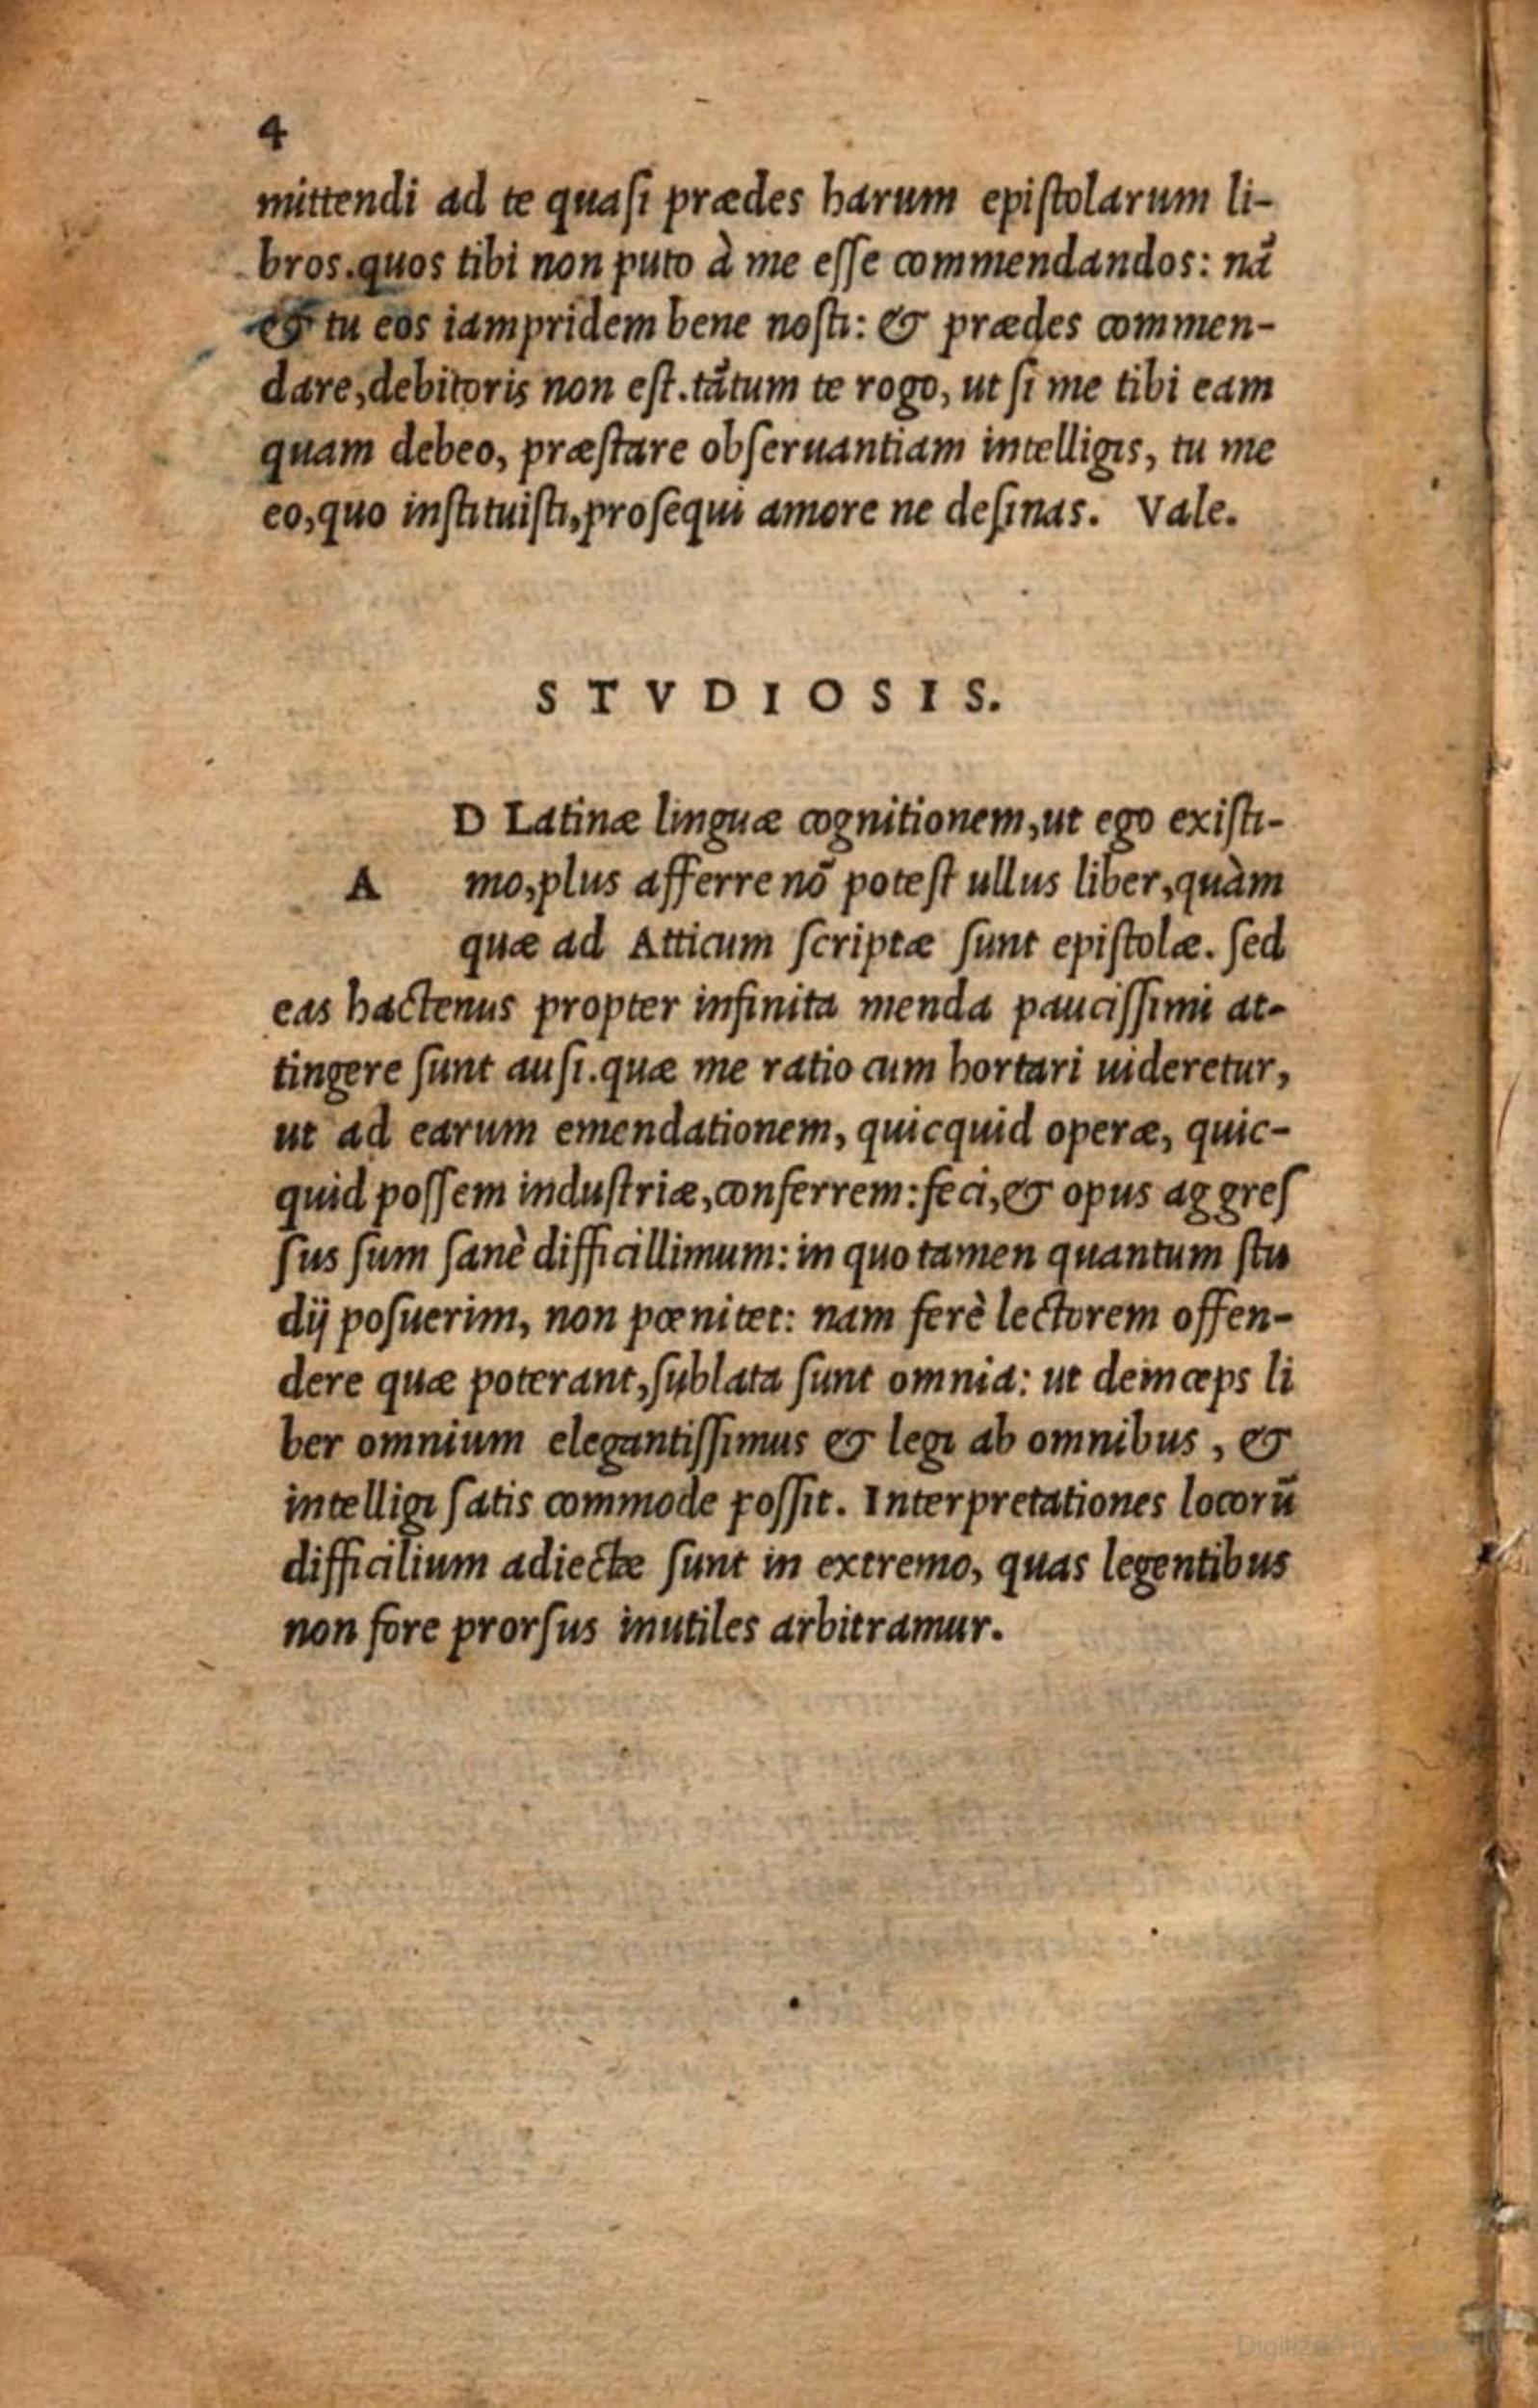 4
mittendi ad te quaſi prædes harum epiſtolarum li-
bros.quos tibi non puto à me eſſe commendandos: nā
& tu eos iampridem bene noſti: & prædes commen-
dare,debitoris non eſt.tātum te rogo, ut ſi me tibi eam
quam debeo, præſtare obſeruantiam intelligis, tu me
eo,quo inſtituiſti,proſequi amore ne deſinas. Vale.
STVDIOSIS.
D Latinæ linguæ cognitionem,ut ego exiſti-
A mo,plus afferre nō poteſt ullus liber,quàm
quæ ad Atticum ſcriptæ ſunt epiſtolæ. ſed
eas hactenus propter infinita menda pauciſſimi at-
tingere ſunt auſi.quæ me ratio cum hortari uideretur,
ut ad earum emendationem, quicquid operæ, quic-
quid poſſem induſtriæ,conferrem:feci,& opus aggreſ
ſus ſum ſanè difficillimum: in quo tamen quantum ſtu
dij poſuerim, non pœnitet: nam ferè lectorem offen-
dere quæ poterant,ſublata ſunt omnia: ut deinceps li
ber omnium elegantiſſimus & legi ab omnibus , &
intelligi ſatis commode poſſit. Interpretationes locorū
difficilium adiectæ ſunt in extremo, quas legentibus
non fore prorſus inutiles arbitramur.
Digitized by Google